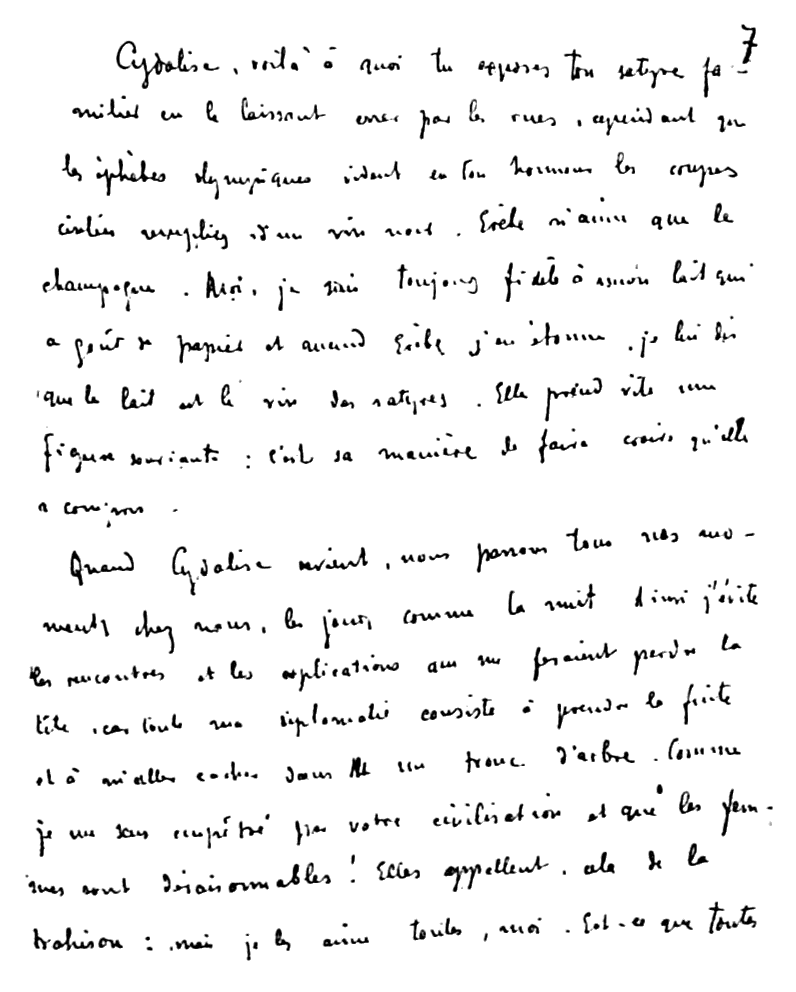 7
Cydalise, voilà à quoi tu exposes ton satyre fa-
milier en le laissant errer par les rues, cependant que
les éphèbes olympiques vident en ton honneur les coupes
ciselées remplies d'un vin noir. Erèbe n'aime que le
champagne. Moi, je suis toujours fidèle à mon lait qui
a goût de papier et quand Erèbe s'en étonne, je lui dis
que le lait est le vin des satyres. Elle prend vite une
figure souriante : c'est sa manière de faire croire qu'elle
a compris.
Quand Cydalise revient, nous passons tous nos mo-
ments chez nous, les jours comme la nuit. Ainsi j'évite
les rencontres et les explications qui me feraient perdre la
tête, car toute ma diplomatie consiste à prendre la fuite
et à m'aller cacher dans un tronc d'arbre. Comme
je me sens empêtré par votre civilisation et que les fem-
mes sont déraisonnables ! Elles appellent cela de la
trahison : mais je les aime toutes, moi. Est-ce que toutes